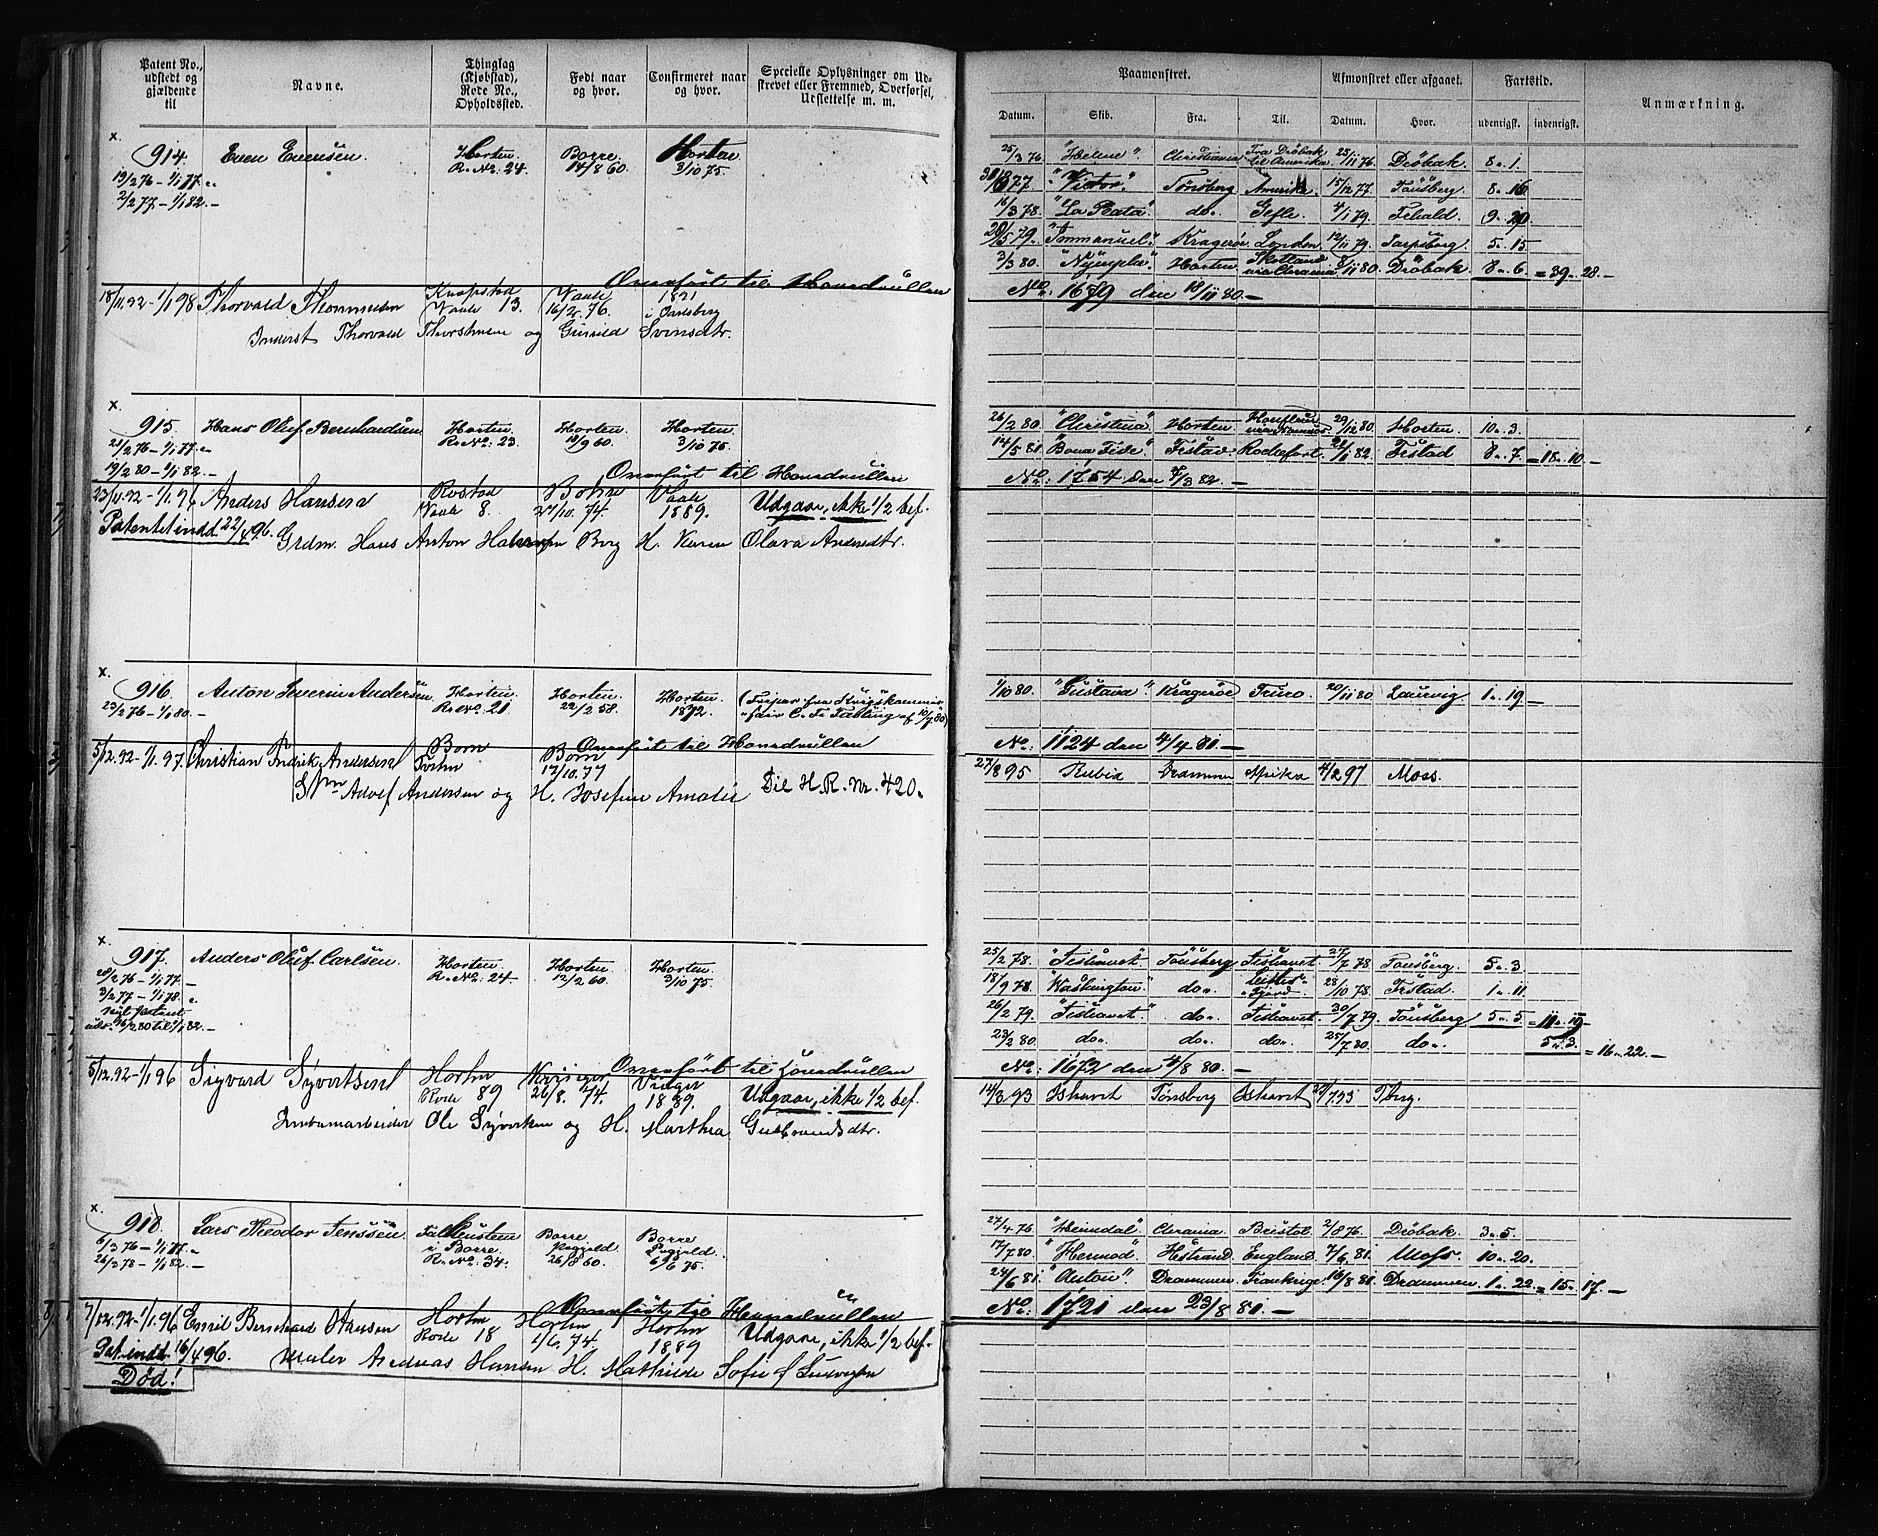 Patent No., udstedt og gjældende til
Navne.
Thinglag (Kjøbstad), Rode No., Opholdssted.
Født naar og hvor.
Confirmeret naar og hvor.
Specielle Oplysninger om Udskrevet eller Fremmed, Overførsel, Udslettelse m. m.
Paamønstret.
Afmønstret eller afgaaet.
Fartstid.
Anmærkning.
Datum. Skib. Fra. Til. Datum. Hvor. udenrigsk. indenrigsk.
x.
914. Even Evensen. Horten. Borre. Horten
19/2 76 – 1/1 77. R. No. 24. 14/8 60. 3/10 75.
2/2 77 – 1/1 82. –
Omført til Hovedrullen
18/11.92 – 1/1 98 Thorvald Knapstad Vaale 1891
Vaale 13. 16/2. 76. i Jarlsberg
Inderst Thorvald og Gunild Svensdtr.
25/3 76. "Helene". Christiania Fra Drøbak til Amerika 11 76. Drøbak. 8 " 1.
77. "Victor". Tønsberg Amerika 15/12 77. Tønsberg 8 " 16
16/3 78. "La Plata". do. Gefle. 4/1 79. 9 " 20
5 79. "Immanuel". Kragerø. London. 12/11 79. Sarpsborg 5 " 15
3/3 80. Horten. Skotland 8/11 80. Drøbak 8 " 6. = 39 " 28. –
No. 1679 den 18/11 80. –
x.
915. Hans Oluf Bernhardsen Horten. Horten. Horten.
21/2 76 – 1/1 77. R. No. 23. 10/9 60. 3/10 75.
19/2 80 – 1/1 82. –
Omført til Hovedrullen
23/11.92 – 1/1 96 Anders Hansen Rostad Botne Vaale Udgaar, ikke 1/2 bef.
Vaale 8. 27/10. 74. 1889.
Patentet indd. 22/4 96. Grdm. Hans Anton Borg H. Karen Olava Andersdtr.
26/2 80. "Christina" Horten 12 80. Horten. 10 " 3.
14/5 81. "Bona Fide" Fr.stad Rochefort 1 82. Fr.stad 8 " 7. = 18 " 10. –
No. 1754 den 4/3 82. –
x.
916. Anton Severin Andersen Horten. Horten. Horten.
23/2 76 – 1/1 80. – R. No. 21. 22/2 58. 1872.
Omført til Hovedrullen
5/12.92 – 1/1. 97. Christian Fredrik Andersen Born Born
Horten 17/10. 77
Adolf Andersen og H. Josefine Amalie Til H.R. Nr. 420.
1/10 80. "Gustava". Kragerø Truro. 20/11 80. Laurvig 1 " 19. –
No. 1124 den 4/4 81. –
27/8 95 Rubin Drammen Afrika 4/2 97 Moss.
x.
917. Anders Oluf Carlsen. Horten. Horten. Horten.
28/2 76 – 1/1 77. R. No. 24. 12/2 60. 3/10 75.
3/2 77 – 1/1 78.
nyt patent
udst. 16/2 80 til 1/1 82. –
Omført til Hovedrullen
5/12.92 – 1/1 96 Sigvard Syvertsen Horten Vinger Udgaar, ikke 1/2 bef.
Rode 89 26/8. 74. 1889.
Ole Syvertsen og H. Marthea Gulbrandsdtr.
25/2 78. "Ishavet". Tønsberg Ishavet 27/7 78. Tønsberg. 5 " 3.
18/9 78. "Washington" do. 28/10 78. Fr.stad. 1 " 11.
26/2 79. "Ishavet". do. Ishavet. 30/7 79. Tønsberg 5 " 5. = 11 " 19
23/2 80. do. do. do. 25/7 80. do. 5 " 3. = 16 " 22. –
No. 1672 den 4/8 80. –
14/3 93 Ishavet Tønsberg Ishavet 7 93 Tbrg.
x.
918. Lars Theodor Jenssen Falkensteen Borre Borre
6/3 76 – 1/1 77. i Borre.
26/2 78 – 1/1 82. – R. No. 34. 26/8 60. 6/6 75.
Omført til Hovedrullen
7/12.92 – 1/1 96 Emil Bernhard Hansen Horten Horten Horten Udgaar, ikke 1/2 bef.
Rode 18 1/6. 74. 1889
Pat. indd. 16/4 96. Maler Andreas Hansen H. Mathilde Sofie
Død!
27/4 76. "Heimdal". Chrania Bristol 2/8 76. Drøbak. 3 " 5.
17/7 80. "Hermod". England 7/6 81. Moss. 10 " 20.
24/6 81. "Anton". Drammen Frankrige 16/8 81. Drammen 1 " 22 = 15 " 17. –
No. 1721 den 23/8 81. –